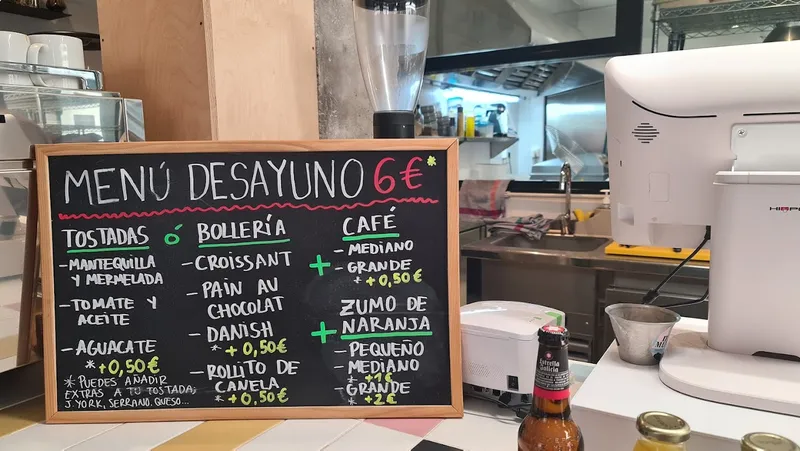 MENÚ DESAYUNO 6€*
TOSTADAS ó BOLLERÍA
- MANTEQUILLA
Y MERMELADA
- TOMATE Y
ACEITE
- AGUACATE
* +0,50€
* PUEDES AÑADIR
EXTRAS A TU TOSTADA;
J. YORK, SERRANO. QUESO...
- CROISSANT
- PAIN AU
CHOCOLAT
- DANISH
* +0,50€
- ROLLITO DE
CANELA
* +0,50€
+ CAFÉ
- MEDIANO
- GRANDE
* +0,50€
+ ZUMO DE
NARANJA
- PEQUEÑO
- MEDIANO
* +1€
- GRANDE
* +2€
Estrella
Galicia